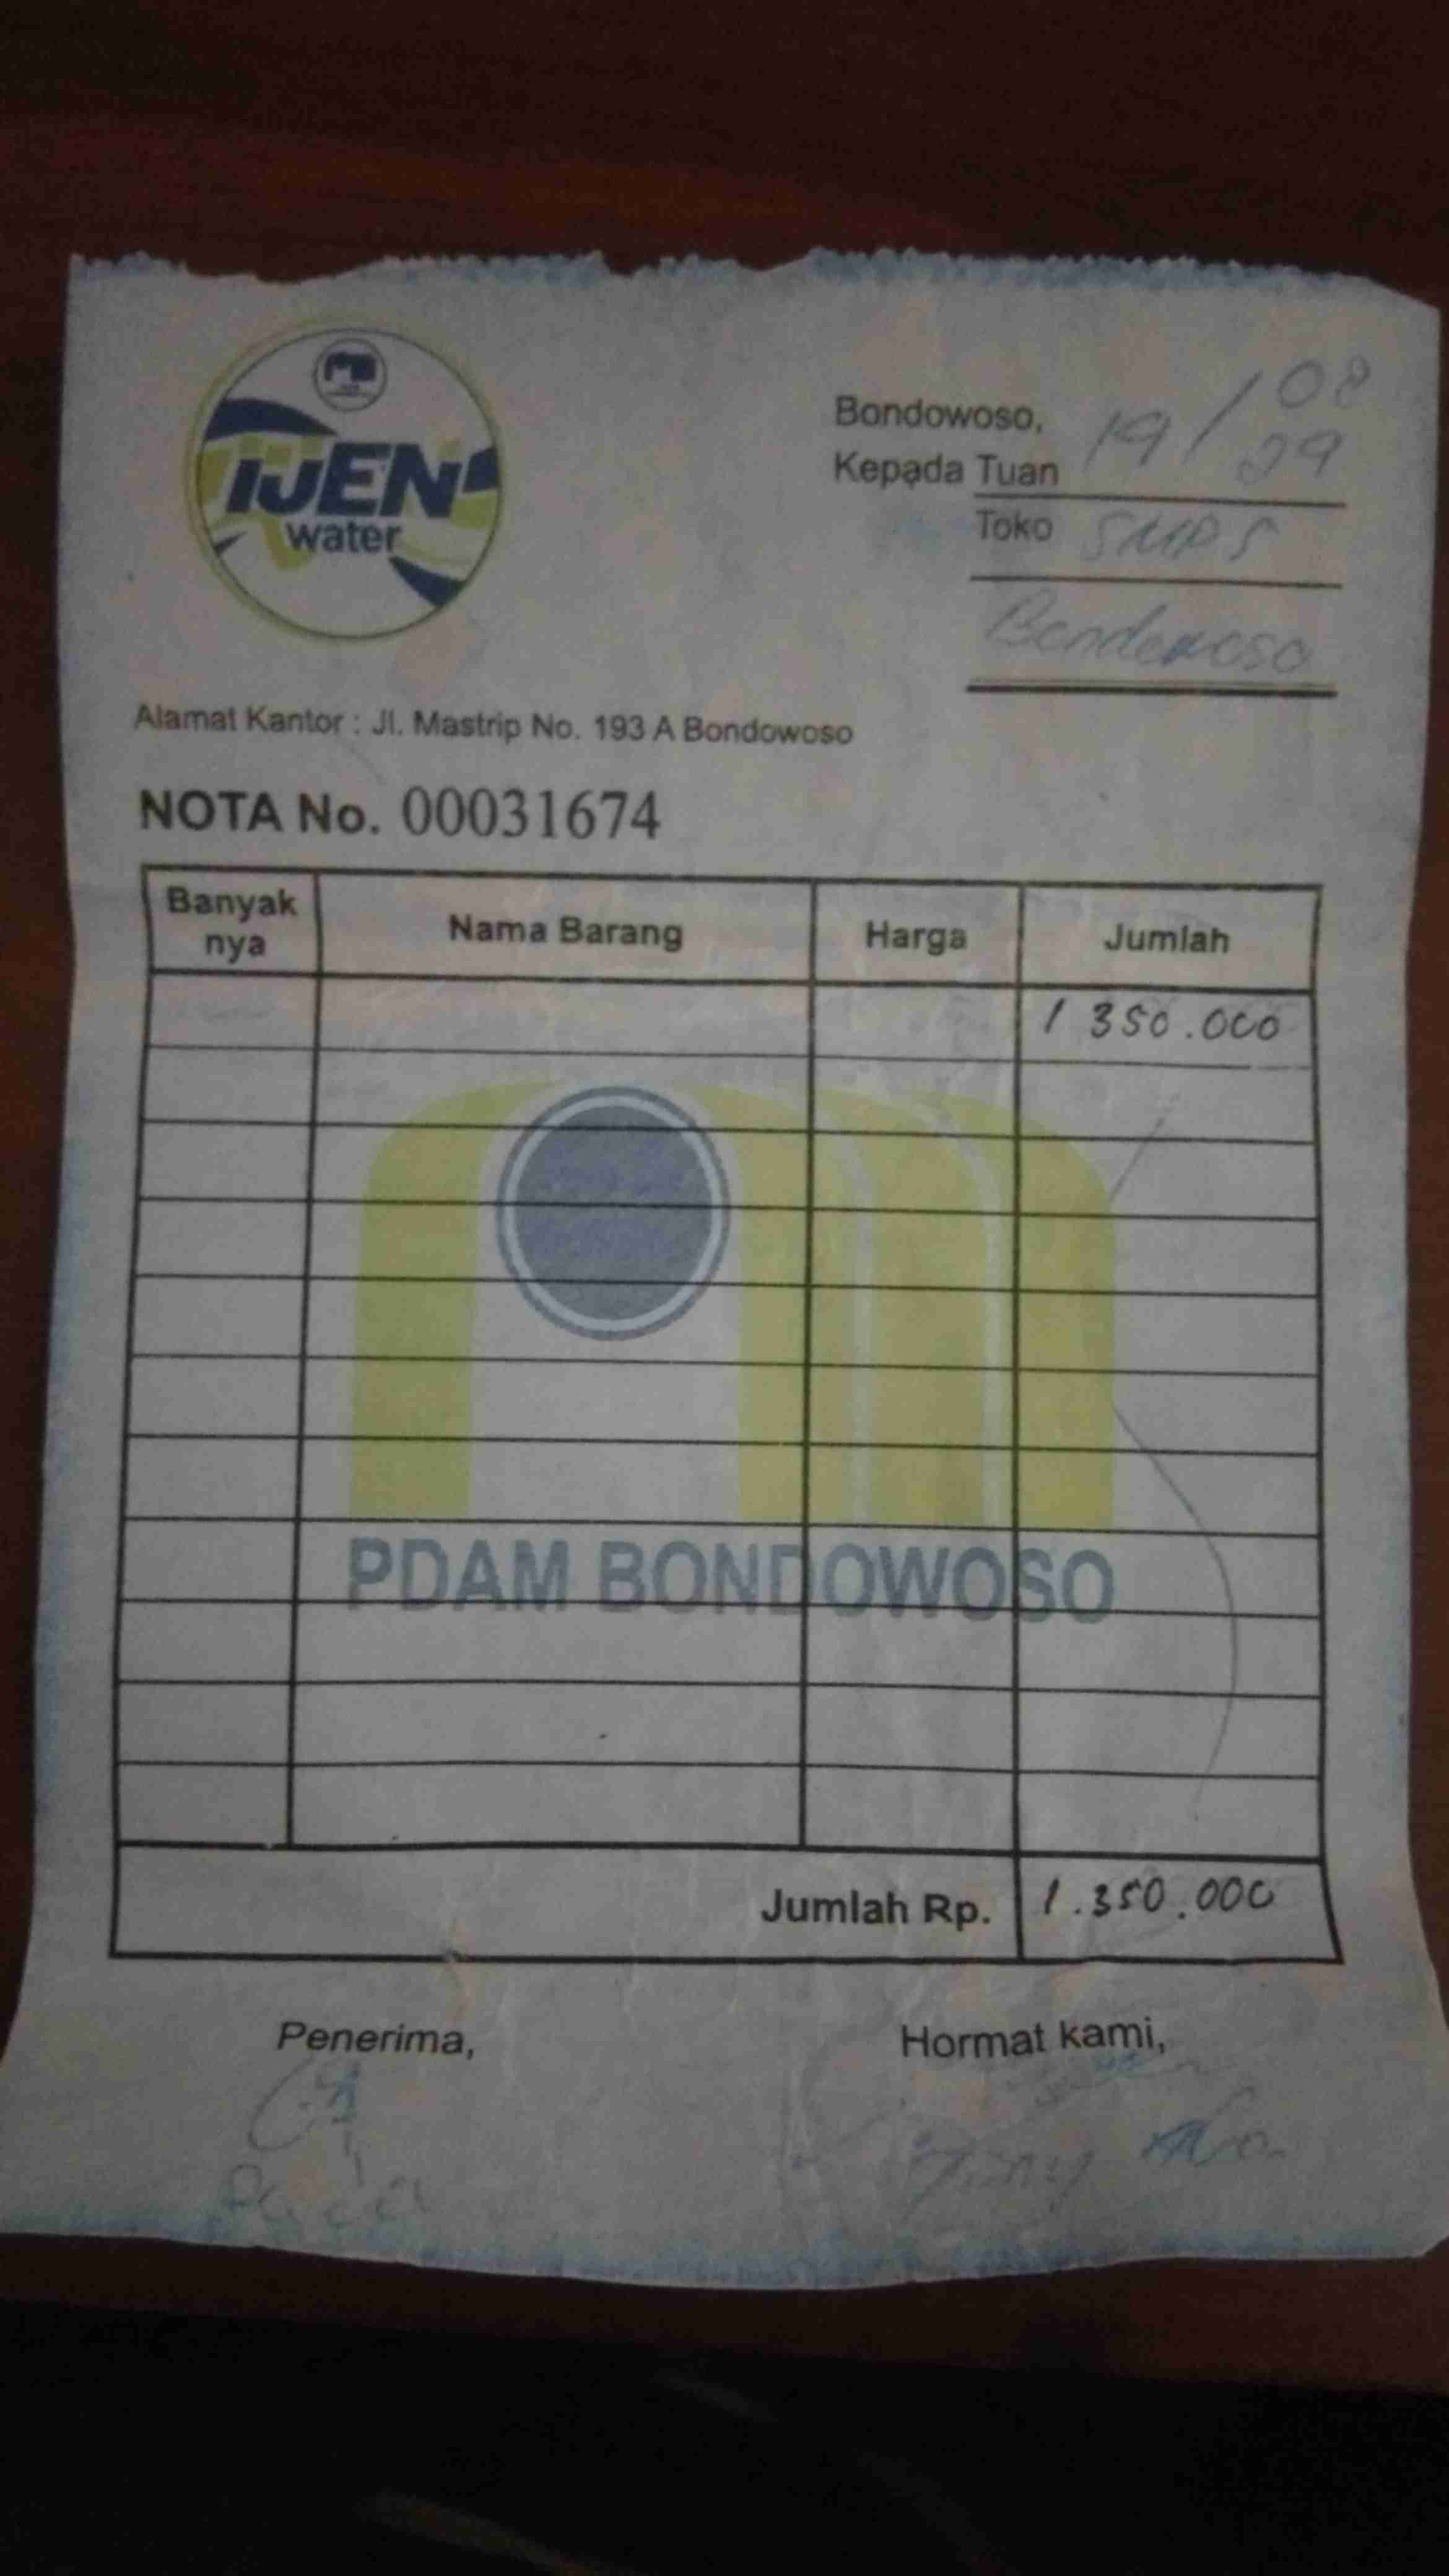 IJEN
water
Bondowoso, 19/08
Kepada Tuan
Toko SMP 5
Bondowoso
Alamat Kantor : Jl. Mastrip No. 193 A Bondowoso
NOTA No. 00031674
Banyak nya Nama Barang Harga Jumlah
1 350.000
PDAM BONDOWOSO
Jumlah Rp. 1.350.000
Penerima, Hormat kami,